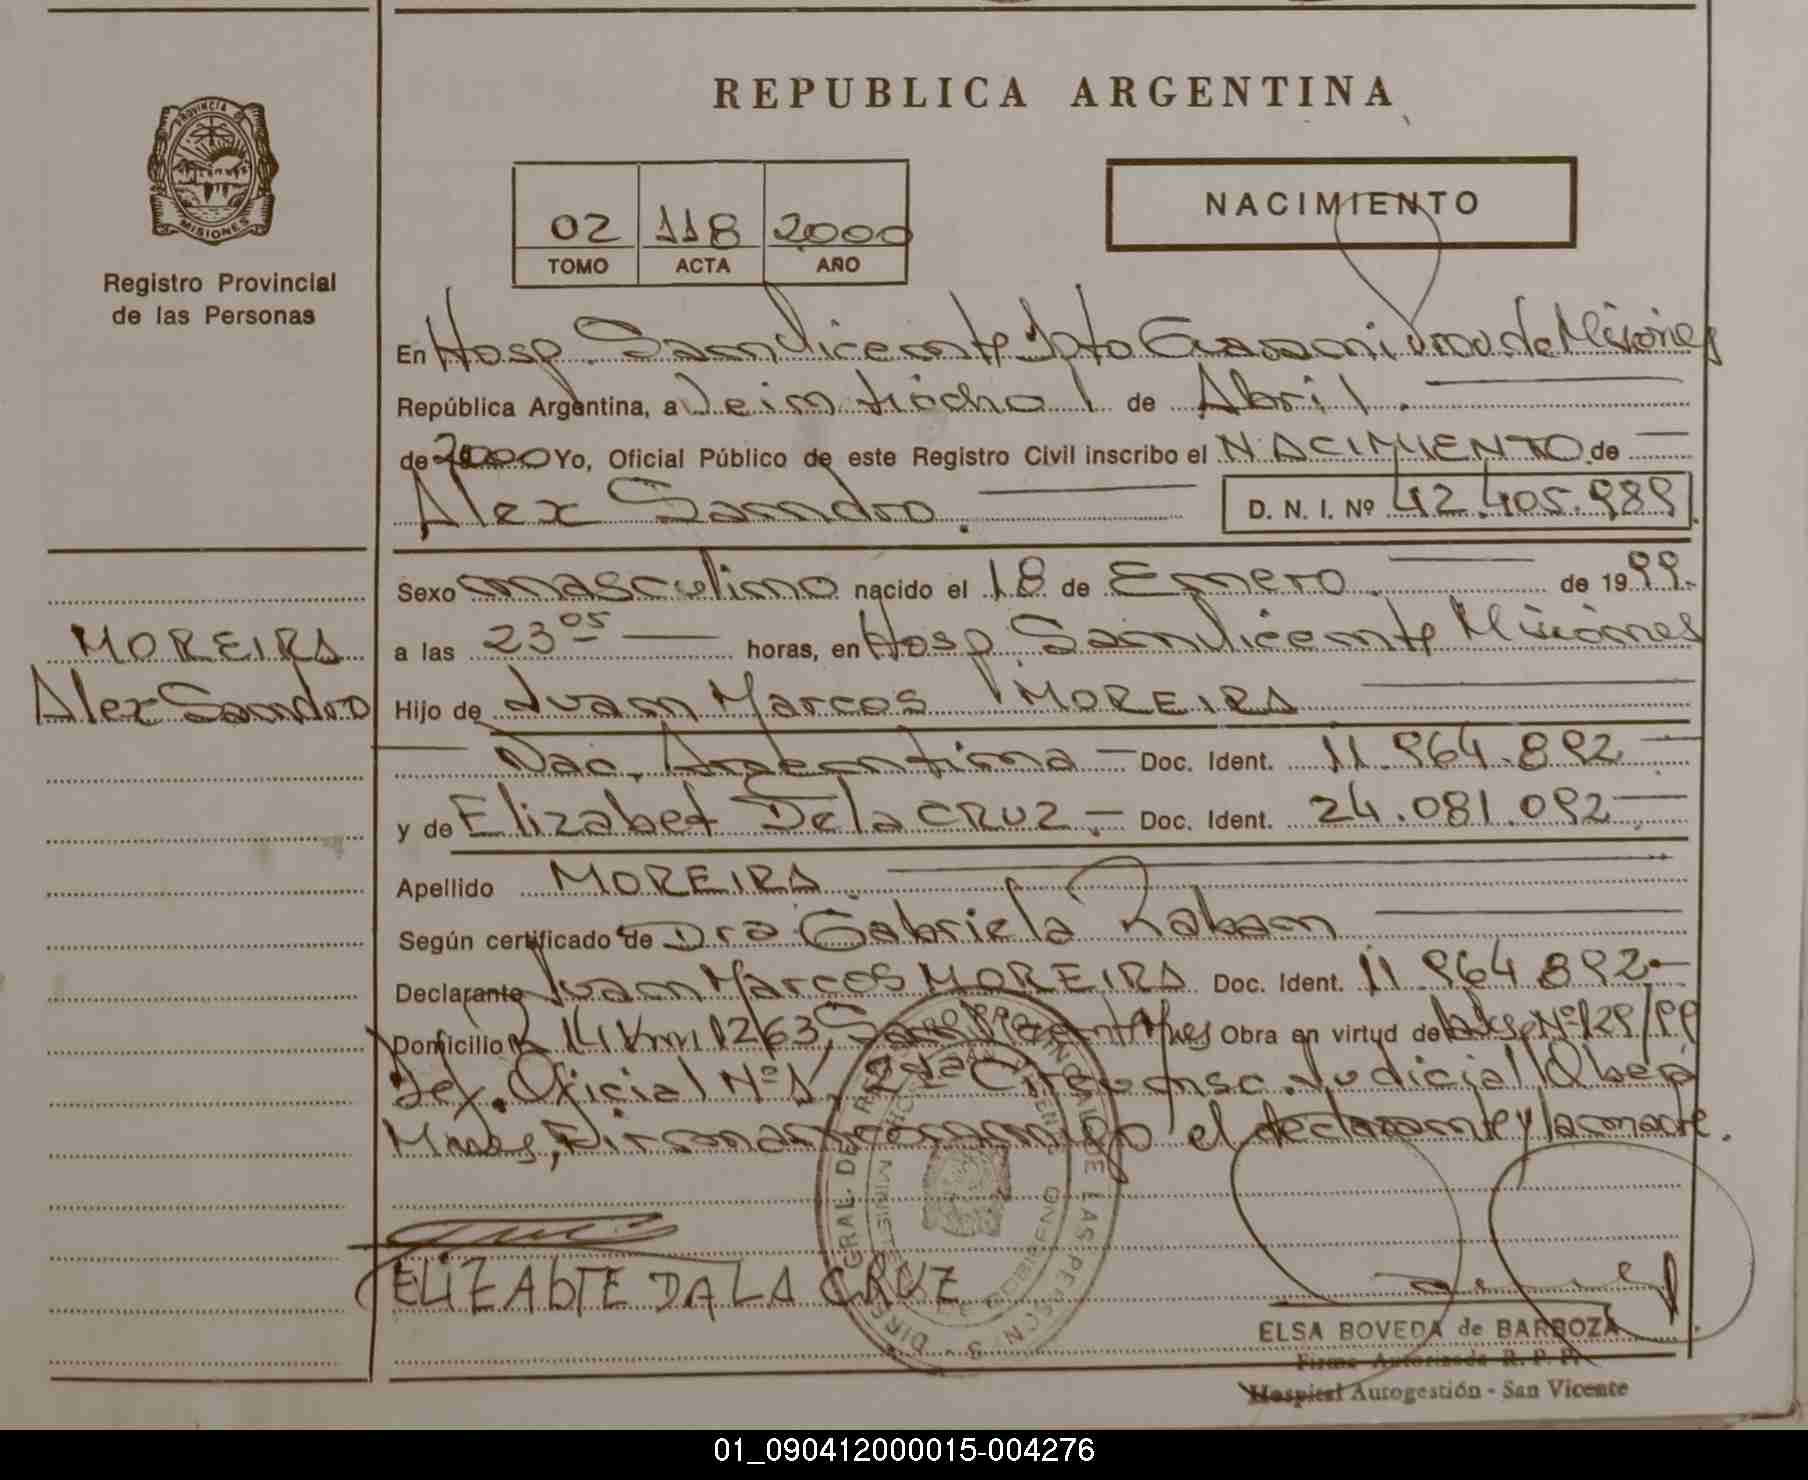 REPUBLICA ARGENTINA
PROVINCIA DE
MISIONES
Registro Provincial
de las Personas
02 118 2000
TOMO ACTA AÑO
NACIMIENTO
En Hosp. San Vicente Dpto Guarani Prov. de Misiones
República Argentina, a Veintiocho de Abril.
de 2000 Yo, Oficial Público de este Registro Civil inscribo el NACIMIENTO de
Alex Sandro. D. N. I. Nº 42.405.989
Sexo masculino nacido el 18 de Enero de 1999.
MOREIRA
Alex Sandro
a las 23 05 horas, en Hosp. San Vicente Misiones
Hijo de Juan Marcos MOREIRA
Nac. Argentina - Doc. Ident. 11.964.892
y de Elizabet De la CRUZ - Doc. Ident. 24.081.092
Apellido MOREIRA
Según certificado de Dra Gabriela Raban
Declarante Juan Marcos MOREIRA Doc. Ident. 11.964.892-
Domicilio R 14 Km 1263, San Vicente Mnes Obra en virtud de Nº 129/99
Def. Oficial Nº 1, 2da Circunsc. Judicial Oberá
Mnes, Firman conmigo el declarante y la madre.
ELIZEAbTE DA LA CRUZ
DIREC. GRAL. DEL REGISTRO PROVINCIAL DE LAS PERSONAS
ELSA BOVEDA de BARBOZA
Firma Autorizada R. P. P.
Hospital Autogestión - San Vicente
01_090412000015-004276